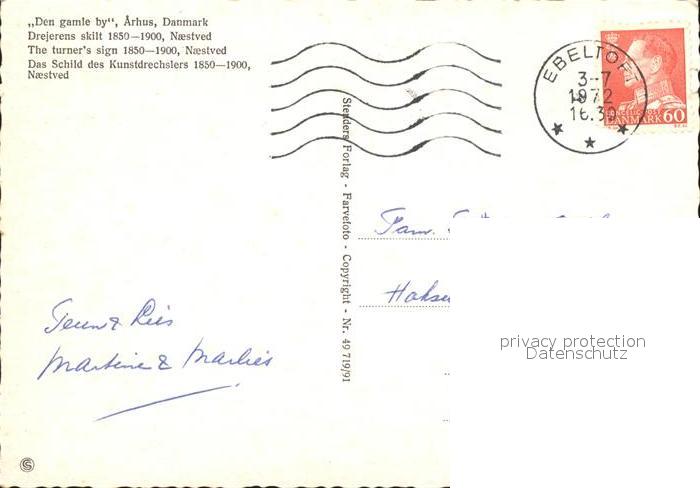 „Den gamle by“, Århus, Danmark
Drejerens skilt 1850—1900, Næstved
The turner's sign 1850—1900, Næstved
Das Schild des Kunstdrechslers 1850—1900,
Næstved
EBELTOFT
3--7
1972
16.30
DANMARK 60
Stenders Forlag - Farvefoto - Copyright - Nr. 49 719/91
Fam.
Teun & Ries
Martine & Marlies
privacy protection
Datenschutz